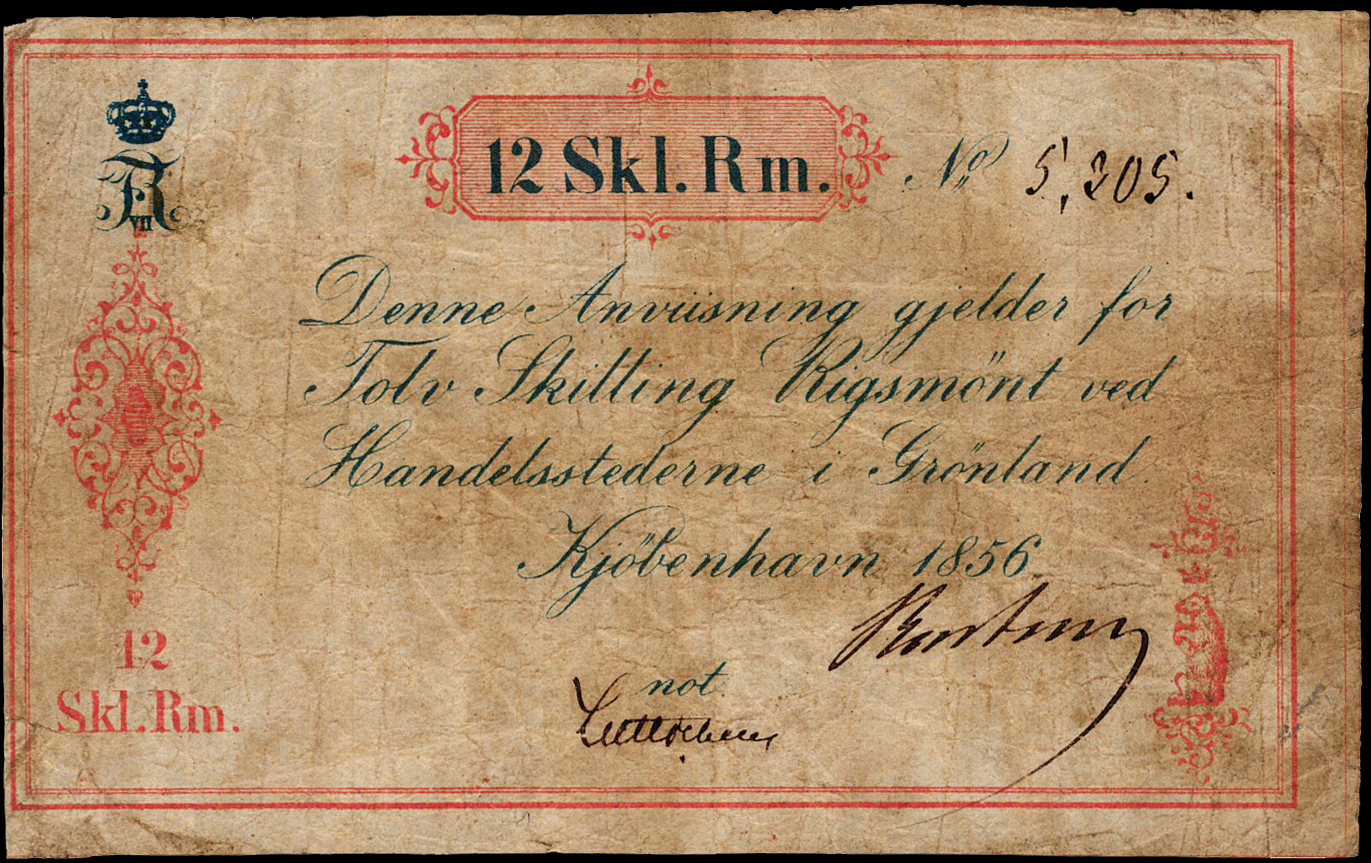 12 Skl. Rm.
No 5,205.
F R
VII
Denne Anviisning gjelder for
Tolv Skilling Rigsmönt ved
Handelsstederne i Grönland.
Kjöbenhavn 1856.
not.
12
Skl. Rm.